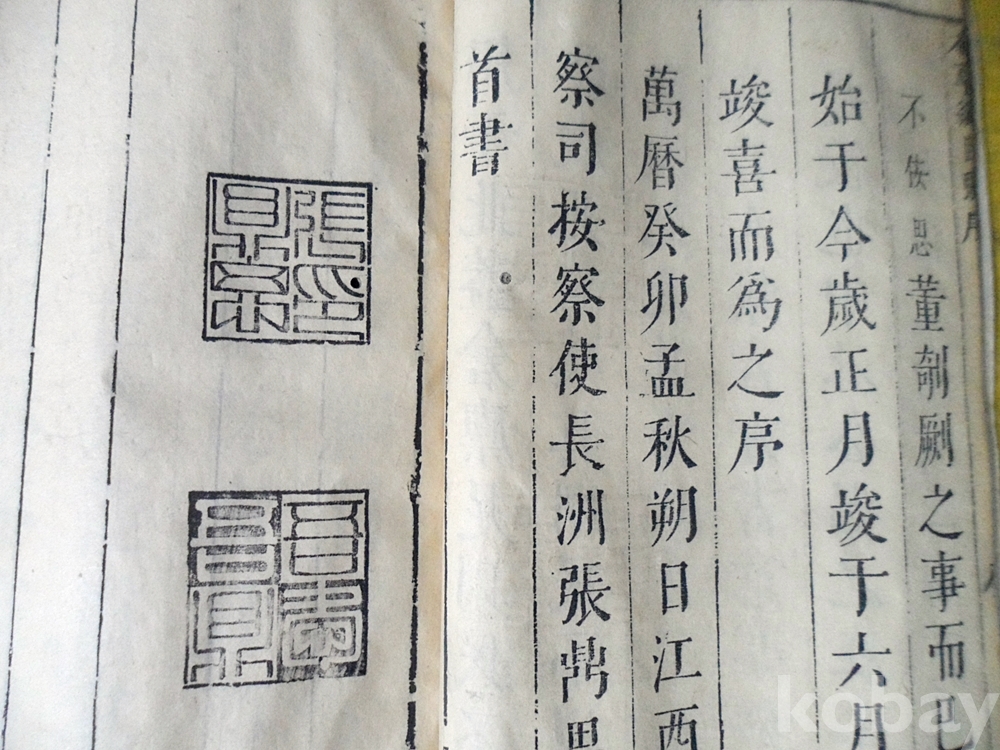 不佞思董剞劂之事而已
始于今歲正月竣于六月
竣喜而爲之序
萬曆癸卯孟秋朔日江西
察司按察使長洲張鼎思
首書
張印
鼎思
kobay